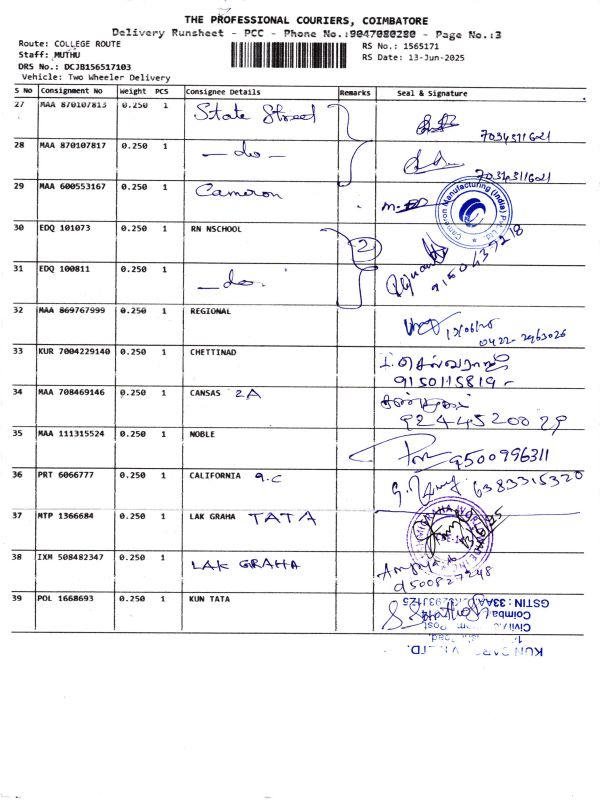 THE PROFESSIONAL COURIERS, COIMBATORE
Delivery Runsheet - PCC - Phone No.:9047080280 - Page No.:3
Route: COLLEGE ROUTE
Staff: MUTHU
DRS No.: DCJB156517103
Vehicle: Two Wheeler Delivery
RS No.: 1565171
RS Date: 13-Jun-2025
S No Consignment No Weight PCS Consignee Details Remarks Seal & Signature
27 MAA 870107813 0.250 1 State Street
7034311621
28 MAA 870107817 0.250 1 — do —
7034311621
29 MAA 600553167 0.250 1 Cameron
Cameron Manufacturing (India) Pvt. Ltd.
30 EDQ 101073 0.250 1 RN NSCHOOL 2
9150437218
31 EDQ 100811 0.250 1 — do.
32 MAA 869767999 0.250 1 REGIONAL 13/06/25
0422-2963026
33 KUR 7004229140 0.250 1 CHETTINAD
9150115819
34 MAA 708469146 0.250 1 CANSAS 2A
9244520029
35 MAA 111315524 0.250 1 NOBLE 9500996311
36 PRT 6066777 0.250 1 CALIFORNIA 9.C 6383315320
37 MTP 1366684 0.250 1 LAK GRAHA TATA
38 IXM 508482347 0.250 1 LAK GRAHA
9500827248
39 POL 1668693 0.250 1 KUN TATA
GSTIN : 33AA
Coimba